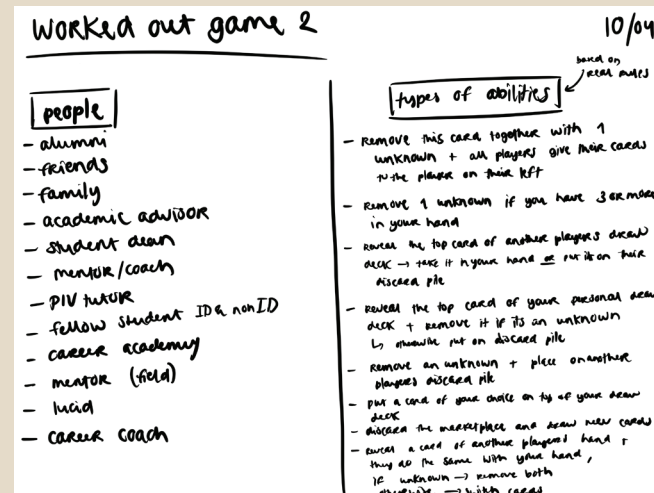 Worked out game 2
10/04
people
- alumni
- friends
- family
- academic advisor
- student dean
- mentor/coach
- PIV tutor
- fellow student ID & non ID
- career academy
- mentor (field)
- lucid
- career coach
based on
real rules
types of abilities
- Remove this card together with 1
unknown + all players give their cards
to the player on their left
- Remove 1 unknown if you have 3 or more
in your hand
- Reveal the top card of another players draw
deck → take it in your hand or put it on their
discard pile
- Reveal the top card of your personal draw
deck + remove it if its an unknown
↳ otherwise put on discard pile
- Remove an unknown + place on another
players discard pile
- put a card of your choice on top of your draw
deck
- discard the marketplace and draw new cards
- reveal a card of another players hand +
they do the same with your hand,
if unknown → remove both
otherwise → switch cards